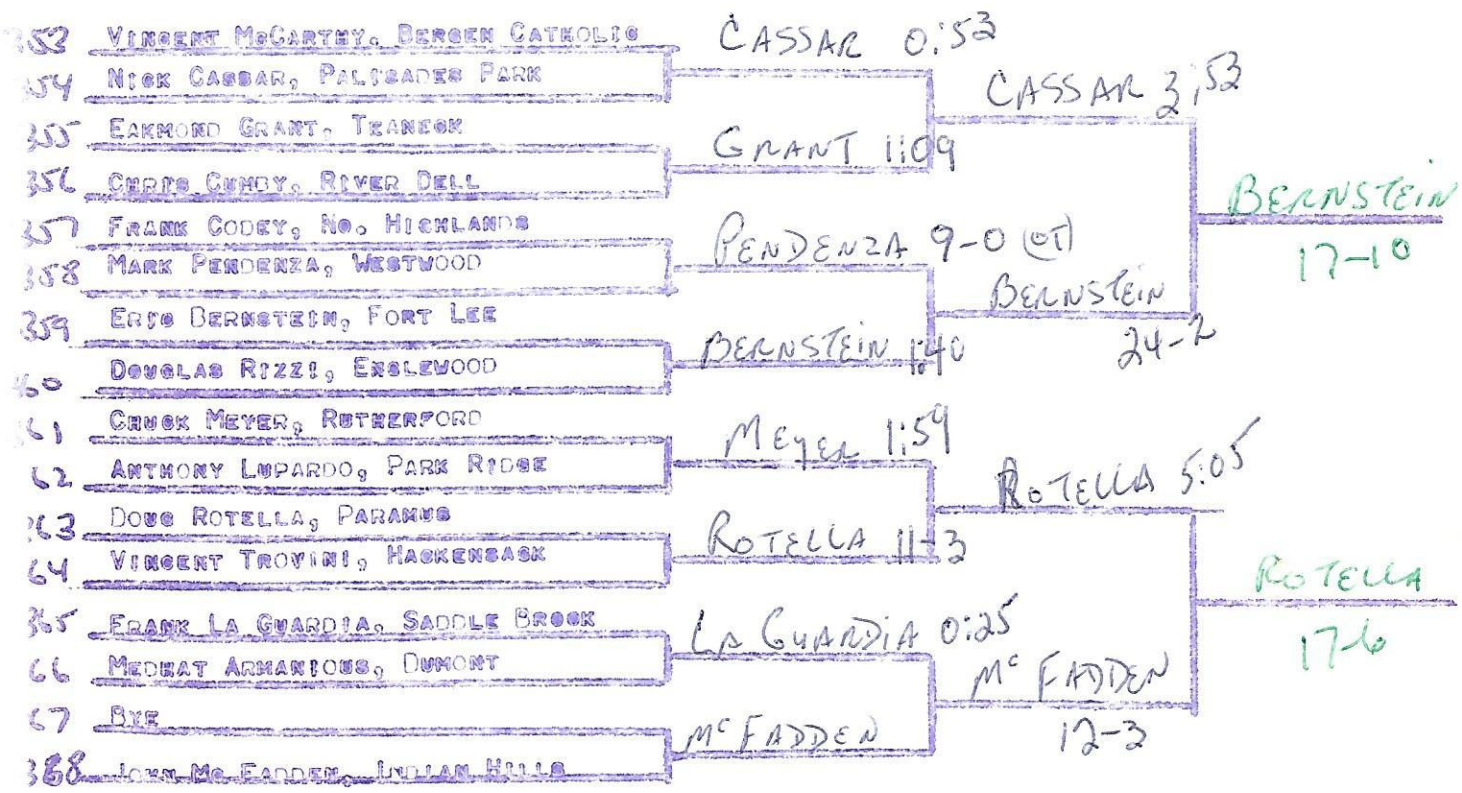 353 VINCENT MCCARTHY, BERGEN CATHOLIC
354 NICK CASSAR, PALISADES PARK
355 EAKMOND GRANT, TEANECK
356 CHRIS CUMBY, RIVER DELL
357 FRANK CODEY, NO. HIGHLANDS
358 MARK PENDENZA, WESTWOOD
359 ERIC BERNSTEIN, FORT LEE
60 DOUGLAS RIZZI, ENGLEWOOD
61 CHUCK MEYER, RUTHERFORD
62 ANTHONY LUPARDO, PARK RIDGE
363 DOUG ROTELLA, PARAMUS
64 VINCENT TROVINI, HACKENSACK
365 FRANK LA GUARDIA, SADDLE BROOK
66 MEDHAT ARMANIOUS, DUMONT
67 BYE
368 JOHN MC FADDEN, INDIAN HILLS
CASSAR 0:53
GRANT 1:09
PENDENZA 9-0 (OT)
BERNSTEIN 1:40
MEYER 1:59
ROTELLA 11-3
LA GUARDIA 0:25
MC FADDEN
CASSAR 3:53
BERNSTEIN
24-2
ROTELLA 5:05
MC FADDEN
12-3
BERNSTEIN
17-10
ROTELLA
17-6